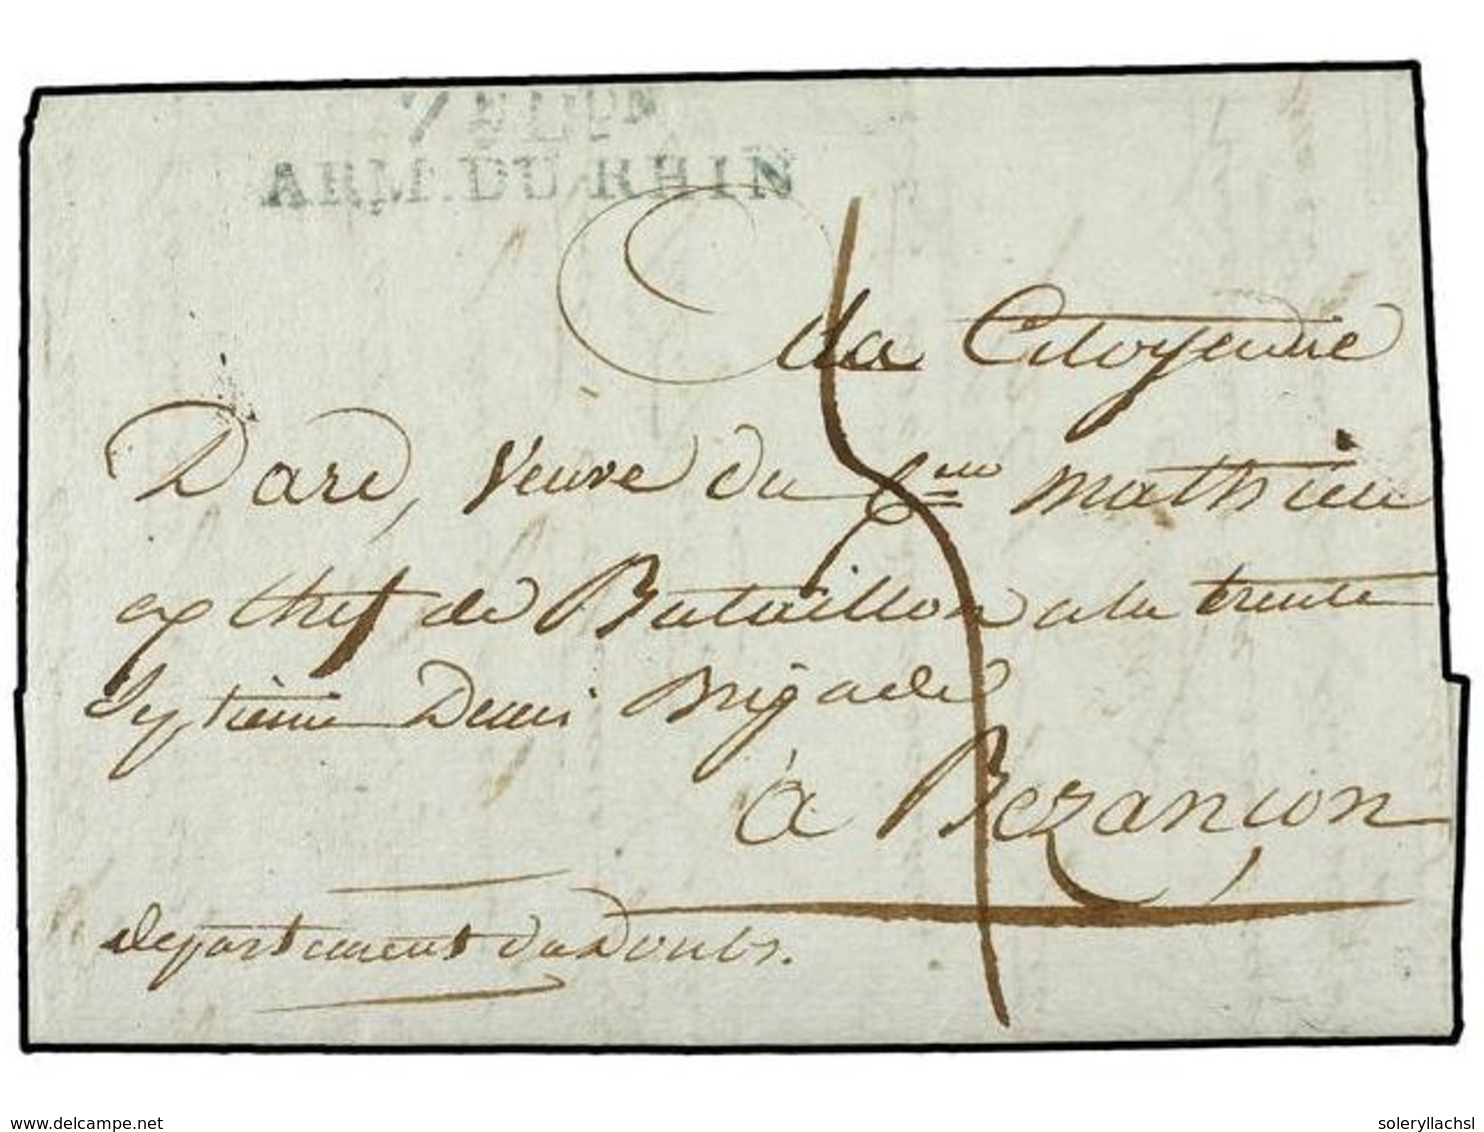 7E DIVON
ARM. DU RHIN
La Citoyenne
Dard, Veuve du Cen Mathieu
ex Chef de Bataillon a la trente
Septième Demi Brigade
à Bezançon
departement du Doubs.
delcampe.net
soleryllachsl